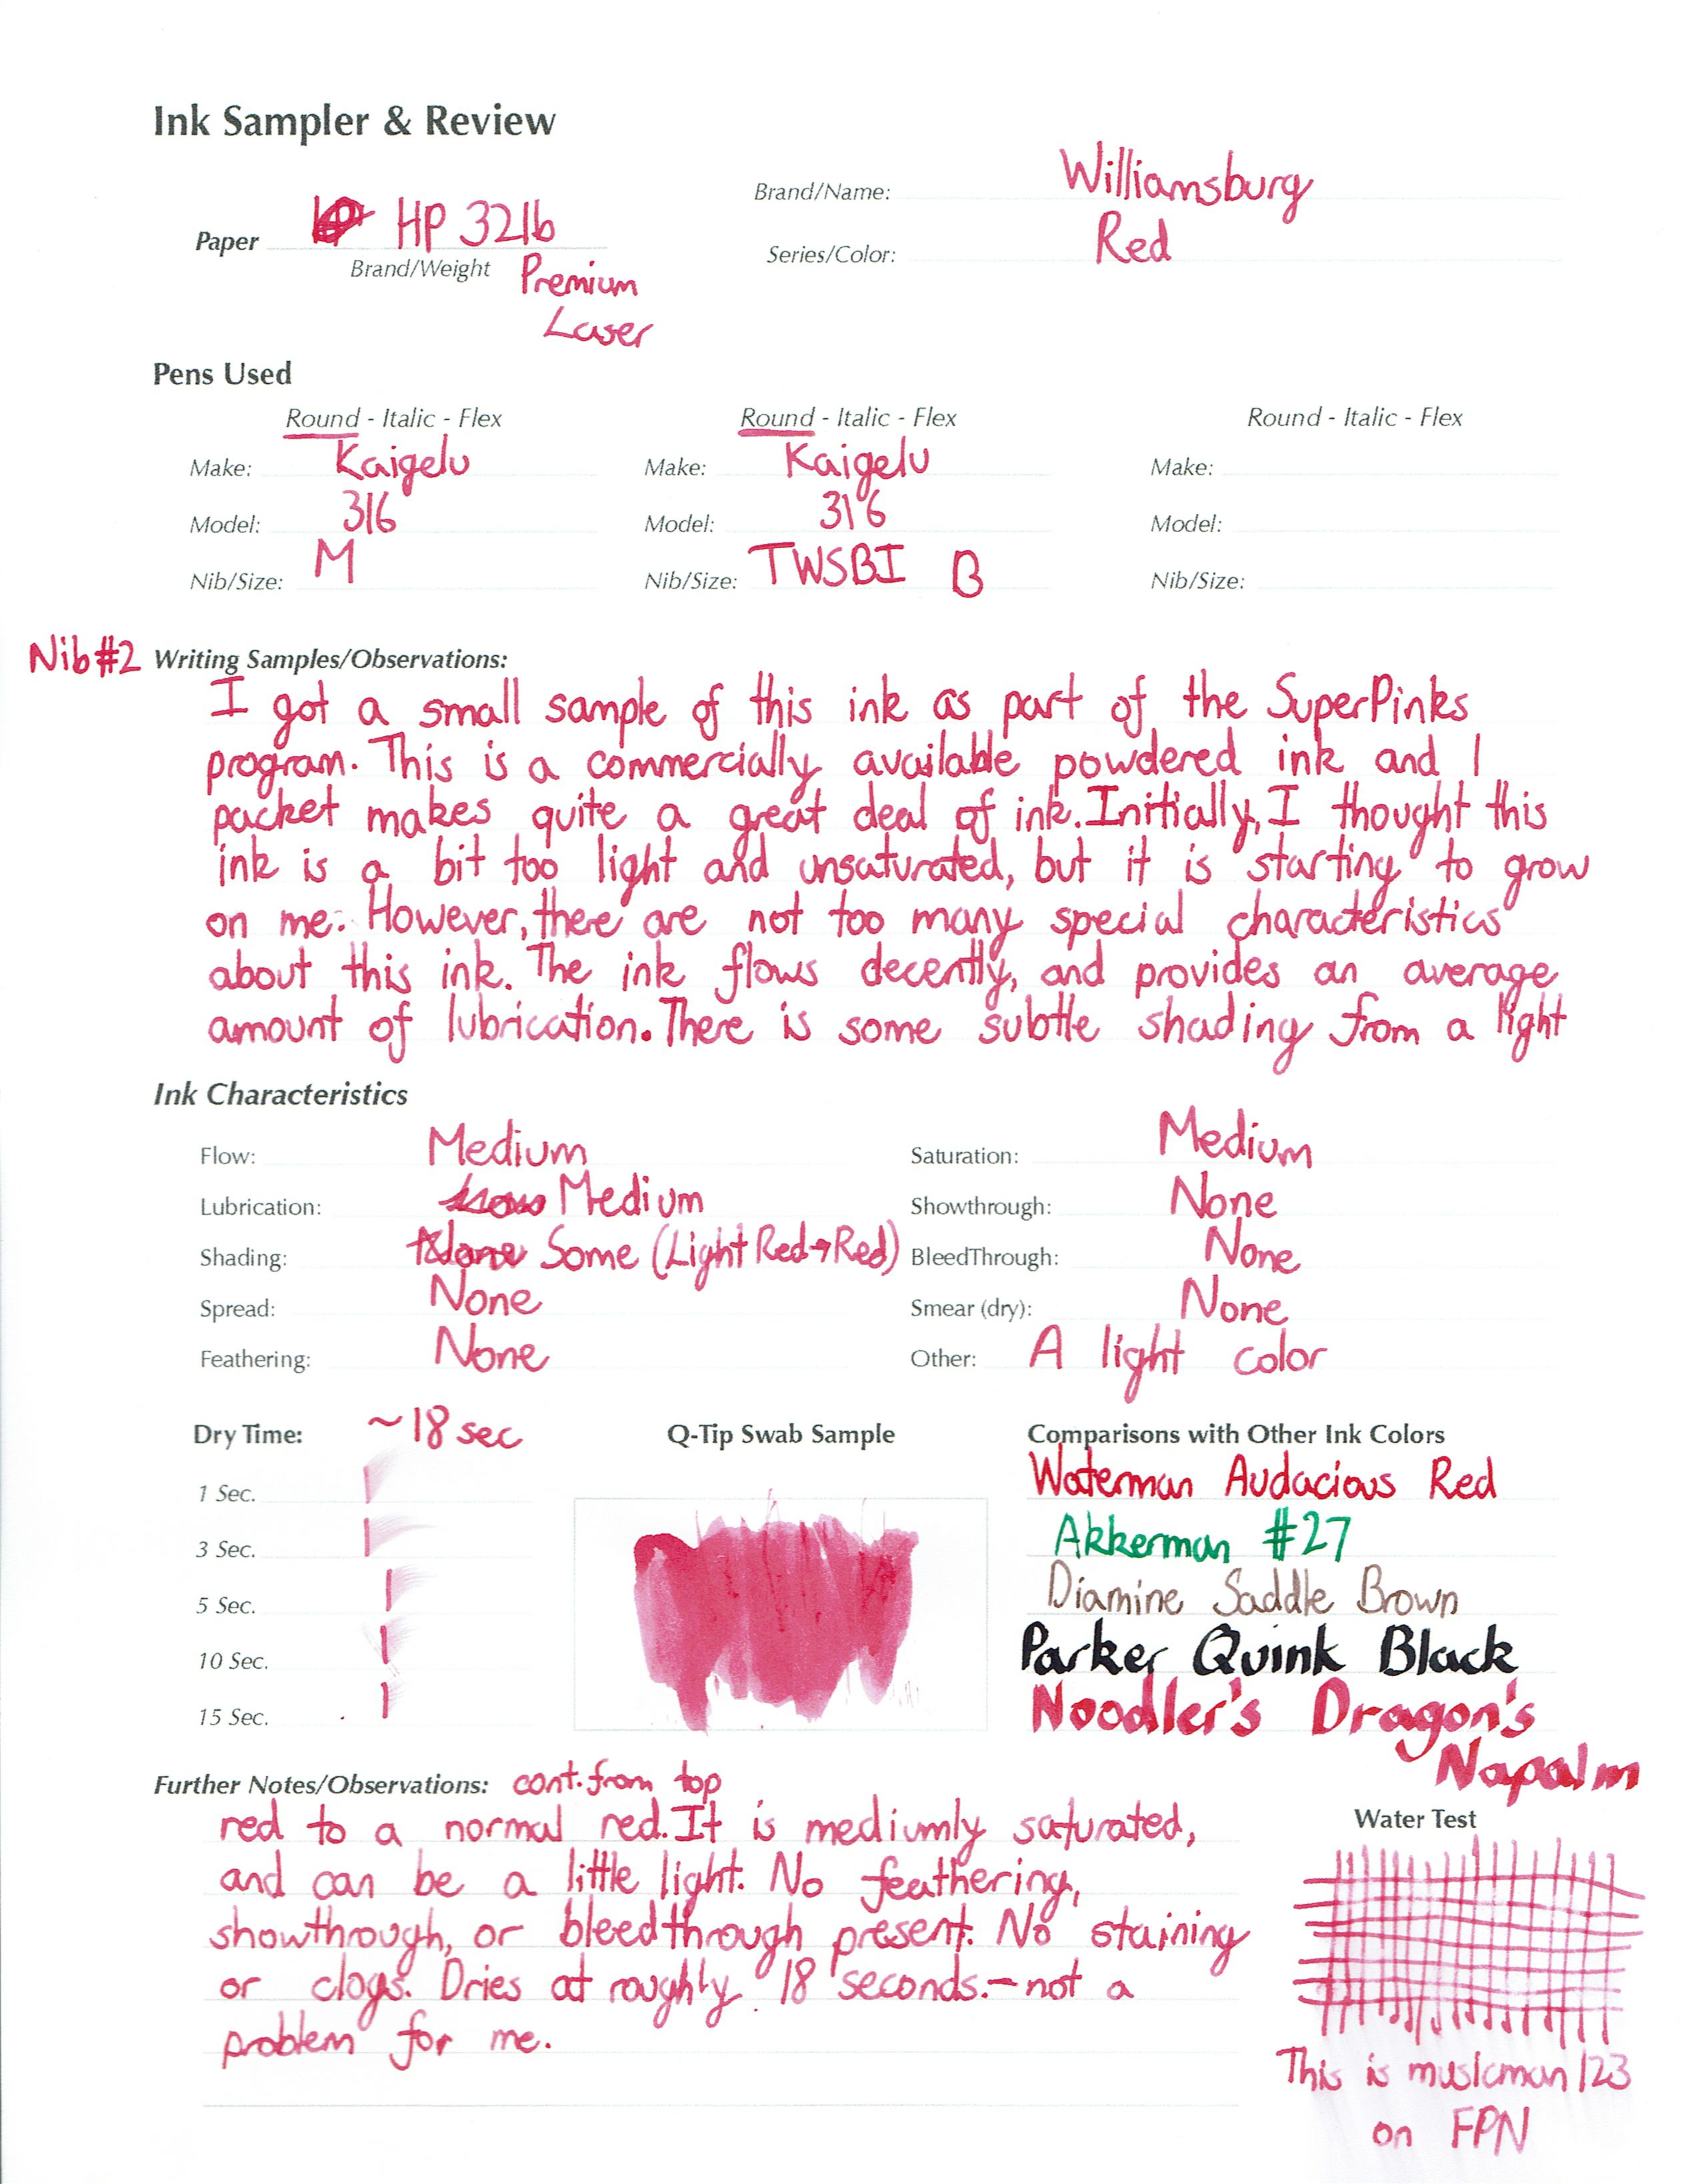 Ink Sampler & Review
Brand/Name: Williamsburg
Paper HP 32lb
Brand/Weight Premium
Laser
Series/Color: Red
Pens Used
Round - Italic - Flex
Make: Kaigelu
Model: 316
Nib/Size: M
Round - Italic - Flex
Make: Kaigelu
Model: 316
Nib/Size: TWSBI B
Round - Italic - Flex
Make:
Model:
Nib/Size:
Nib#2 Writing Samples/Observations:
I got a small sample of this ink as part of the SuperPinks
program. This is a commercially available powdered ink and 1
packet makes quite a great deal of ink. Initially, I thought this
ink is a bit too light and unsaturated, but it is starting to grow
on me. However, there are not too many special characteristics
about this ink. The ink flows decently, and provides an average
amount of lubrication. There is some subtle shading from a light
Ink Characteristics
Flow: Medium
Lubrication: Medium
Shading: None Some (Light Red→Red)
Spread: None
Feathering: None
Saturation: Medium
Showthrough: None
BleedThrough: None
Smear (dry): None
Other: A light color
Dry Time: ~18 sec
1 Sec.
3 Sec.
5 Sec.
10 Sec.
15 Sec.
Q-Tip Swab Sample
Comparisons with Other Ink Colors
Waterman Audacious Red
Akkerman #27
Diamine Saddle Brown
Parker Quink Black
Noodler's Dragon's
Napalm
Further Notes/Observations: cont. from top
red to a normal red. It is mediumly saturated,
and can be a little light. No feathering,
showthrough, or bleedthrough present. No staining
or clogs. Dries at roughly 18 seconds.-not a
problem for me.
Water Test
This is musicman123
on FPN